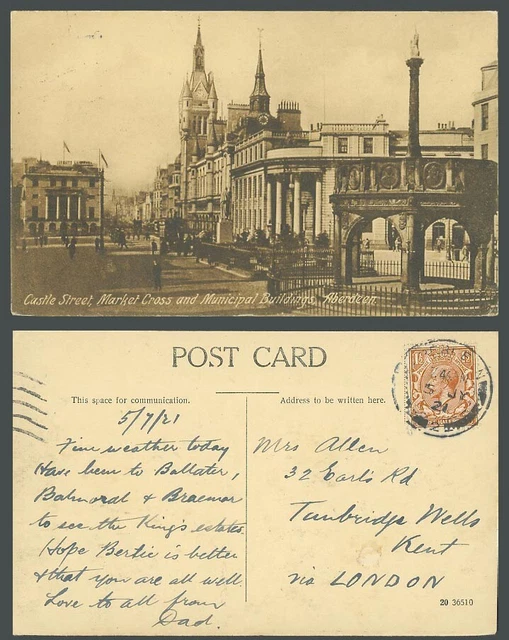 Castle Street, Market Cross and Municipal Buildings, Aberdeen.
POST CARD
This space for communication.
Address to be written here.
5/7/21
Fine weather today
Have been to Ballater,
Balmoral & Braemar
to see the King's estates.
Hope Bertie is better
& that you are all well.
Love to all from
Dad.
Mrs Allen
32 Earl's Rd
Tunbridge Wells
Kent
via LONDON
20 36510